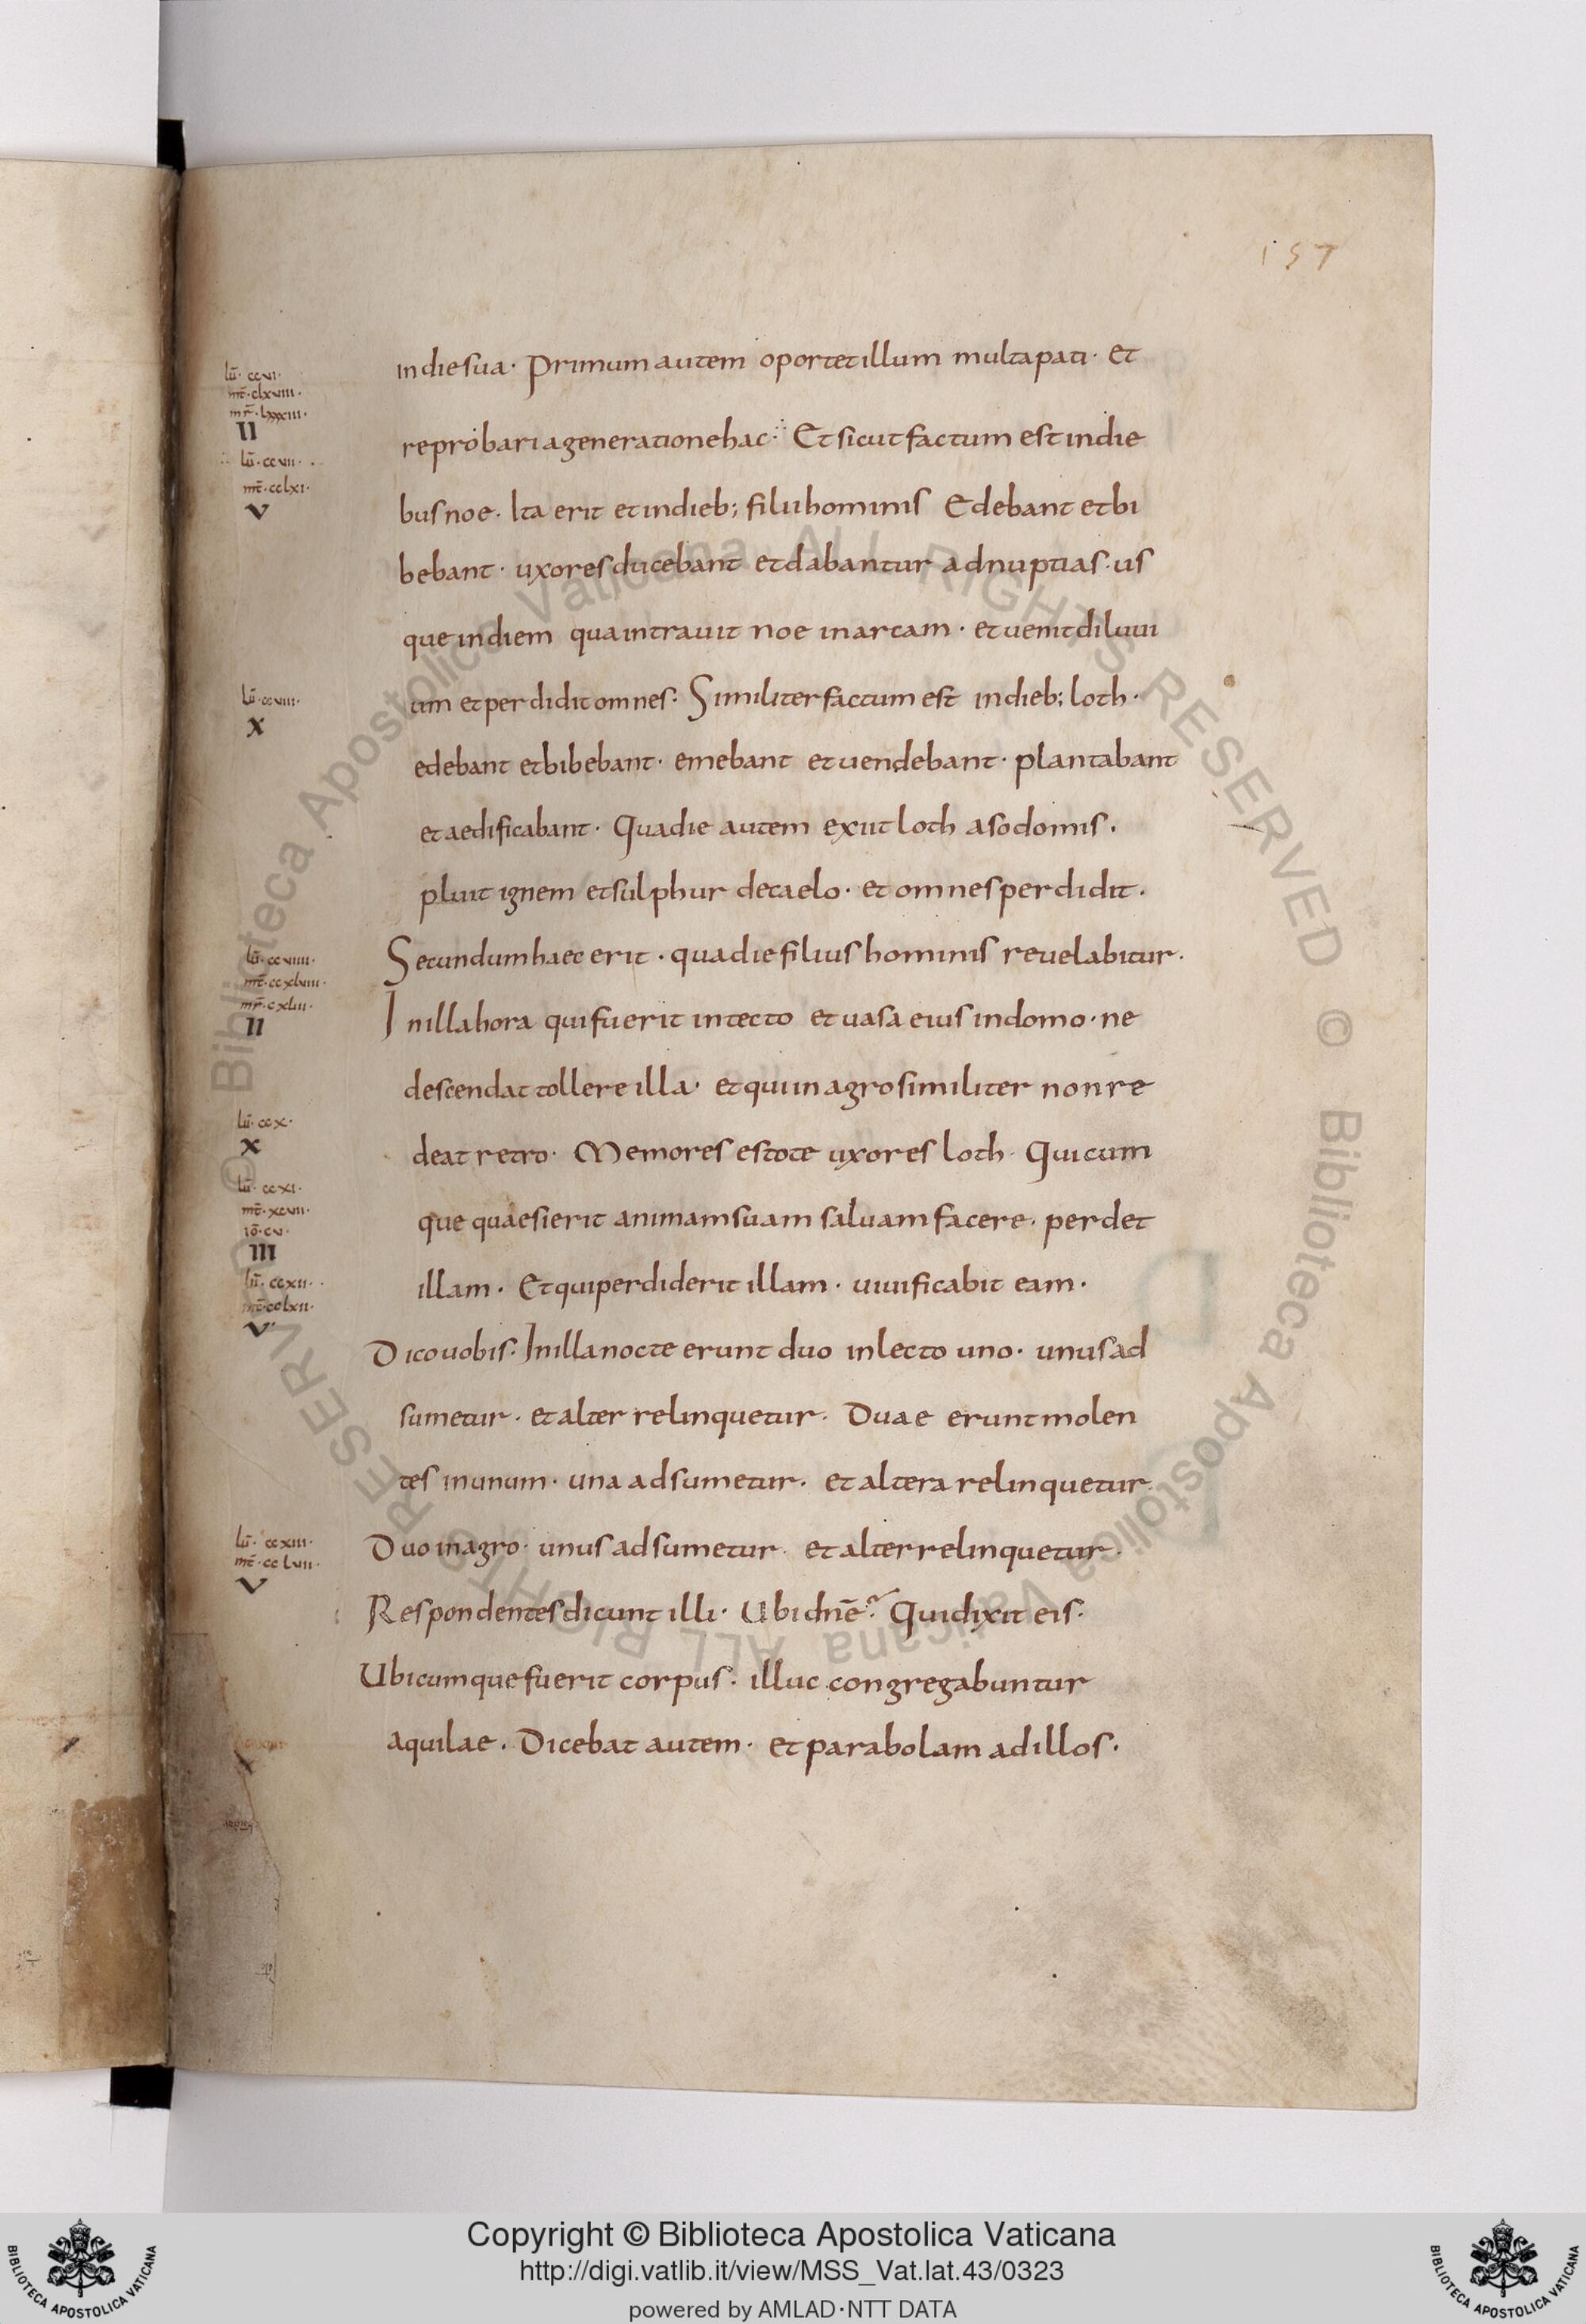 157
in die sua· Primum autem oportet illum multa pati· et
reprobari a generatione hac· Et sicut factum est in die
bus noe· Ita erit et in dieb; filii hominis Edebant et bi
bebant· uxores ducebant et dabantur ad nuptias· us
que in diem qua intravit noe in arcam· et venit diluui
um et perdidit omnes· Similiter factum est in dieb; loth·
edebant et bibebant· emebant et uendebant· plantabant
et aedificabant· Qua die autem exiit loth a sodomis·
pluit ignem et sulphur de caelo· et omnes perdidit·
Secundum haec erit· qua die filius hominis reuelabitur·
In illa hora qui fuerit in tecto et uasa eius in domo· ne
descendat tollere illa· et qui in agro similiter non re
deat retro· Memores estote uxores loth· Quicum
que quaesierit animam suam saluam facere· perdet
illam· Et qui perdiderit illam· uiuificabit eam·
Dico uobis· In illa nocte erunt duo in lecto uno· unus ad
sumetur· et alter relinquetur· Duae erunt molen
tes in unum· una adsumetur· et altera relinquetur·
Duo in agro· unus adsumetur· et alter relinquetur·
Respondentes dicunt illi· Ubi dnē? Qui dixit eis·
Ubicumque fuerit corpus· illuc congregabuntur
aquilae· Dicebat autem· et parabolam ad illos·
lū· ccvi·
mt̄· clxviii·
mr̄· lxxxiii·
II
lū· ccvii·
mt̄· cclxi·
V
lū· ccviii·
X
lū· ccviiii·
mt̄· ccxlviii·
mr̄· cxliii·
II
lū· ccx·
X
lū· ccxi·
mt̄· xcvii·
iō· cv·
III
lū· ccxii·
mt̄· cclxii·
V
lū· ccxiii·
mt̄· cclvii·
V
© Biblioteca Apostolica Vaticana ALL RIGHTS RESERVED
© Biblioteca Apostolica Vaticana ALL RIGHTS RESERVED
Copyright © Biblioteca Apostolica Vaticana
http://digi.vatlib.it/view/MSS_Vat.lat.43/0323
powered by AMLAD·NTT DATA
BIBLIOTECA APOSTOLICA VATICANA
BIBLIOTECA APOSTOLICA VATICANA